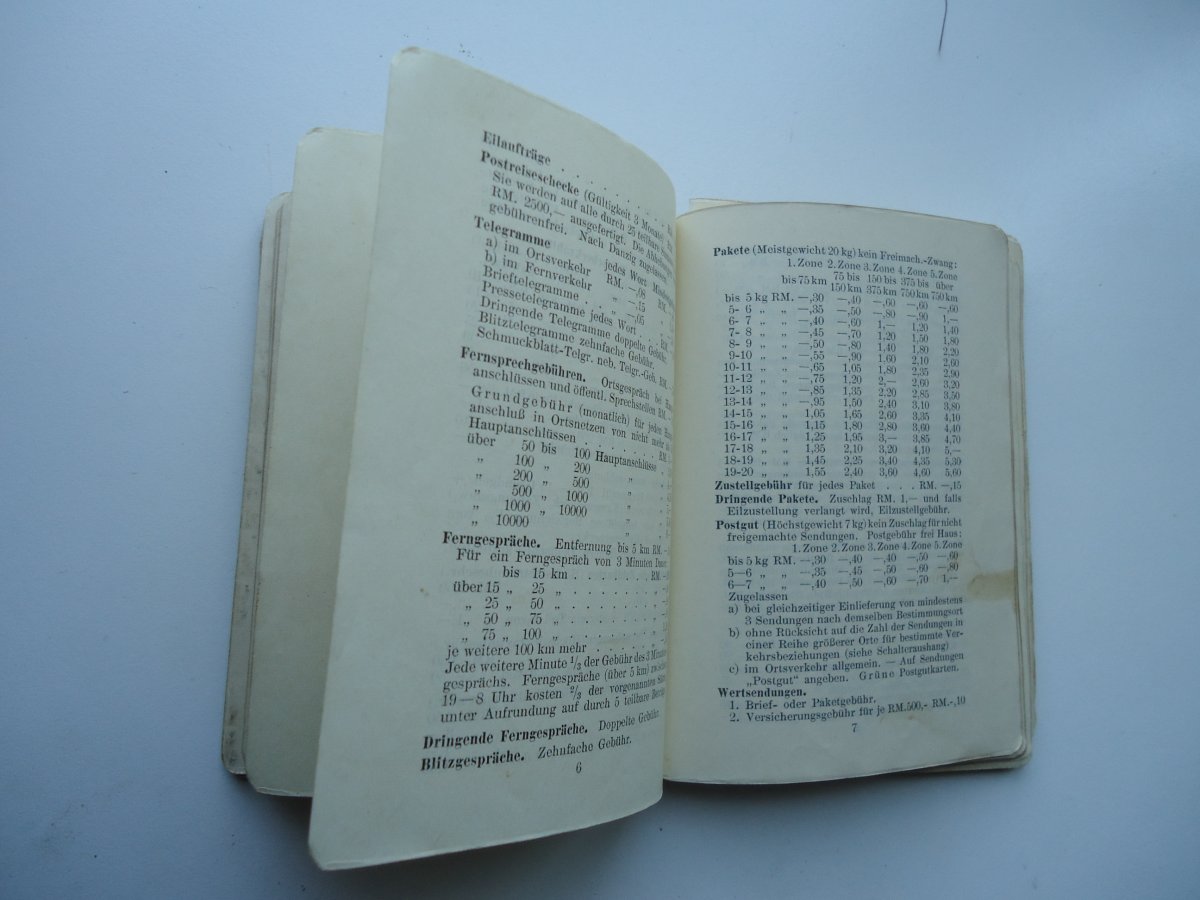 Eilaufträge . . . . . . . .
Postreiseschecke (Gültigkeit 3 Monate)
Sie werden auf alle durch 25 teilbare
RM. 2500,— ausgefertigt. Die
gebührenfrei. Nach Danzig zugelassen
Telegramme jedes Wort
a) im Ortsverkehr RM. —,08
b) im Fernverkehr „ —,15
Brieftelegramme . . „ —,05
Pressetelegramme jedes Wort .
Dringende Telegramme doppelte Gebühr.
Blitztelegramme zehnfache Gebühr.
Schmuckblatt-Telgr. neb. Telgr.-Geb. RM.
Fernsprechgebühren. Ortsgespräch bei
anschlüssen und öffentl. Sprechstellen RM.
Grundgebühr (monatlich) für jeden
anschluß in Ortsnetzen von nicht mehr
Hauptanschlüssen . . . . . . . RM.
über 50 bis 100 Hauptanschlüsse
„ 100 „ 200 „
„ 200 „ 500 „
„ 500 „ 1000 „
„ 1000 „ 10000 „
„ 10000 „
Ferngespräche. Entfernung bis 5 km RM.
Für ein Ferngespräch von 3 Minuten
bis 15 km . . . . . . . RM.
über 15 „ 25 „ . . . . . . .
„ 25 „ 50 „ . . . . . . .
„ 50 „ 75 „ . . . . . . .
„ 75 „ 100 „ . . . . . . .
je weitere 100 km mehr . . . . . . .
Jede weitere Minute 1/3 der Gebühr des 3
gesprächs. Ferngespräche (über 5 km)
19—8 Uhr kosten 2/3 der vorgenannten
unter Aufrundung auf durch 5 teilbare
Dringende Ferngespräche. Doppelte Gebühr.
Blitzgespräche. Zehnfache Gebühr.
6
Pakete (Meistgewicht 20 kg) kein Freimach.-Zwang:
1. Zone 2. Zone 3. Zone 4. Zone 5. Zone
bis 75 km 75 bis 150 bis 375 bis über
150 km 375 km 750 km 750 km
bis 5 kg RM. —,30 —,40 —,60 —,60 —,60
5- 6 „ „ —,35 —,50 —,80 —,90 1,—
6- 7 „ „ —,40 —,60 1,— 1,20 1,40
7- 8 „ „ —,45 —,70 1,20 1,50 1,80
8- 9 „ „ —,50 —,80 1,40 1,80 2,20
9-10 „ „ —,55 —,90 1,60 2,10 2,60
10-11 „ „ —,65 1,05 1,80 2,35 2,90
11-12 „ „ —,75 1,20 2,— 2,60 3,20
12-13 „ „ —,85 1,35 2,20 2,85 3,50
13-14 „ „ —,95 1,50 2,40 3,10 3,80
14-15 „ „ 1,05 1,65 2,60 3,35 4,10
15-16 „ „ 1,15 1,80 2,80 3,60 4,40
16-17 „ „ 1,25 1,95 3,— 3,85 4,70
17-18 „ „ 1,35 2,10 3,20 4,10 5,—
18-19 „ „ 1,45 2,25 3,40 4,35 5,30
19-20 „ „ 1,55 2,40 3,60 4,60 5,60
Zustellgebühr für jedes Paket . . . RM. —,15
Dringende Pakete. Zuschlag RM. 1,— und falls
Eilzustellung verlangt wird, Eilzustellgebühr.
Postgut (Höchstgewicht 7 kg) kein Zuschlag für nicht
freigemachte Sendungen. Postgebühr frei Haus:
1. Zone 2. Zone 3. Zone 4. Zone 5. Zone
bis 5 kg RM. —,30 —,40 —,40 —,50 —,60
5—6 „ „ —,35 —,45 —,50 —,60 —,80
6—7 „ „ —,40 —,50 —,60 —,70 1,—
Zugelassen
a) bei gleichzeitiger Einlieferung von mindestens
3 Sendungen nach demselben Bestimmungsort
b) ohne Rücksicht auf die Zahl der Sendungen in
einer Reihe größerer Orte für bestimmte Ver-
kehrsbeziehungen (siehe Schalteraushang)
c) im Ortsverkehr allgemein. — Auf Sendungen
„Postgut" angeben. Grüne Postgutkarten.
Wertsendungen.
1. Brief- oder Paketgebühr,
2. Versicherungsgebühr für je RM.500,- RM.-,10
7